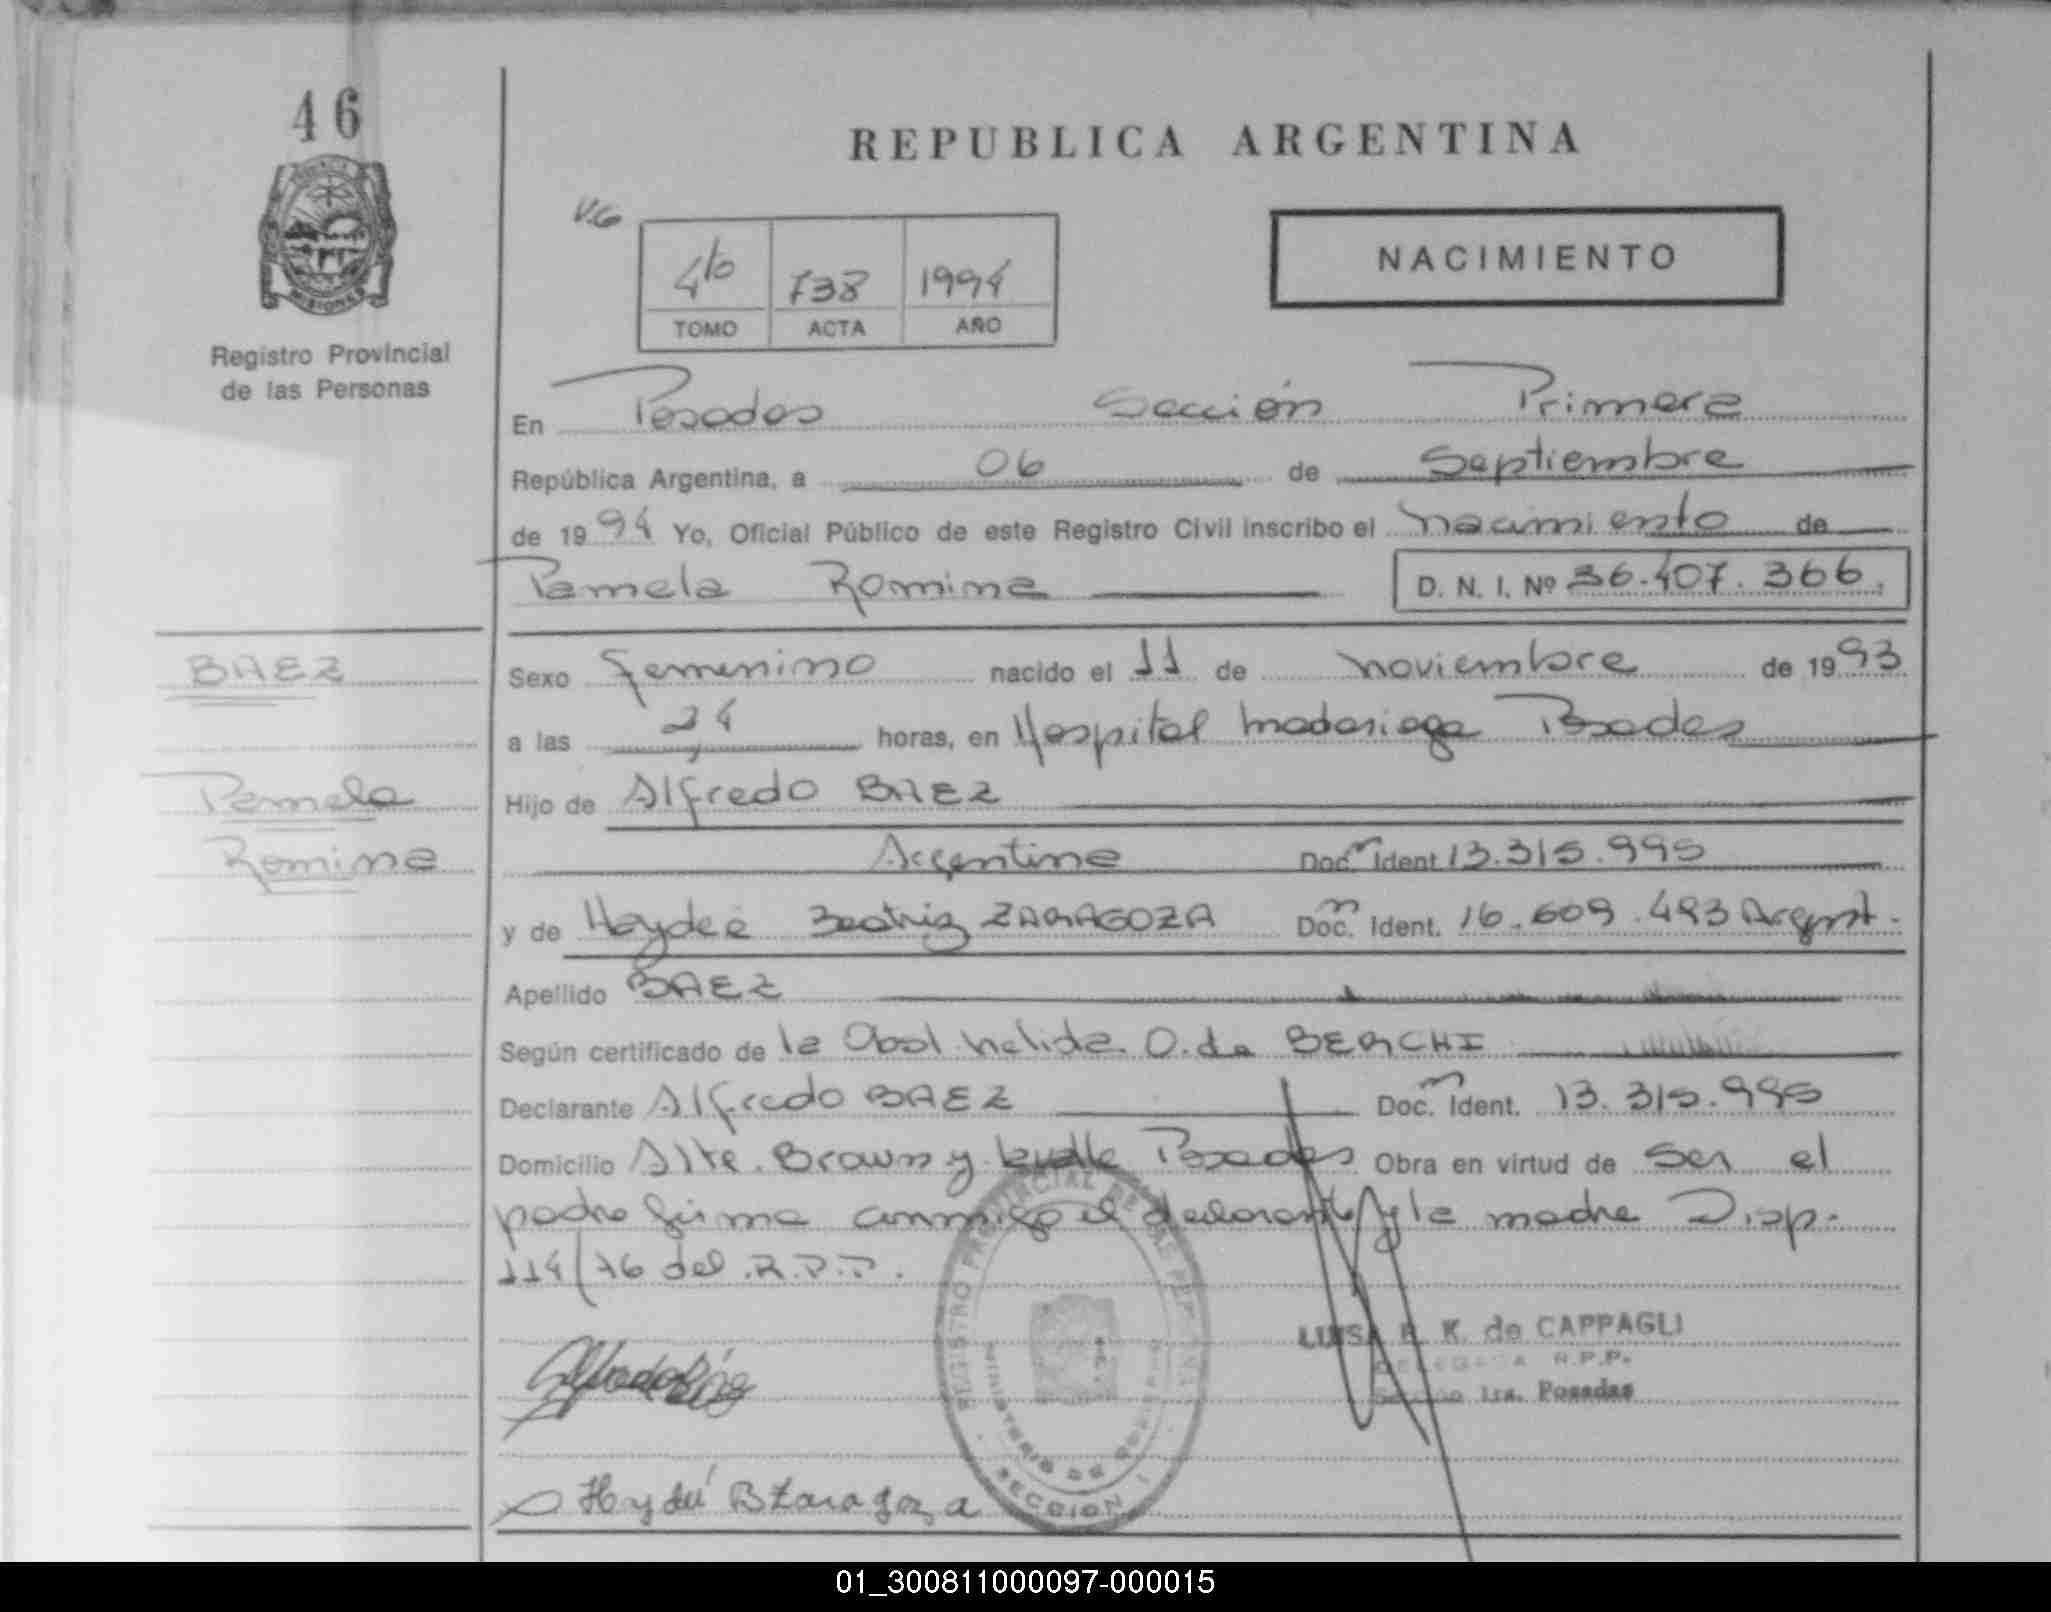 46
MISIONES
Registro Provincial
de las Personas
REPUBLICA ARGENTINA
NACIMIENTO
4to 738 1994
TOMO ACTA AÑO
En Posadas Sección Primera
República Argentina, a 06 de Septiembre
de 1994 Yo, Oficial Público de este Registro Civil inscribo el nacimiento de
Pamela Romina D. N. I. Nº 36.407.366
BAEZ
Pamela
Romina
Sexo Femenino nacido el 11 de noviembre de 1993
a las 24 horas, en Hospital Madariaga Posadas
Hijo de Alfredo BAEZ
Argentina Doc. Ident 13.315.995
y de Haydeé Beatriz ZARAGOZA Doc. Ident. 16.609.493 Argent.
Apellido BAEZ
Según certificado de la Obst Nelida O. de BERCHI
Declarante Alfredo BAEZ Doc. Ident. 13.315.995
Domicilio Alte. Brown y Posadas Obra en virtud de ser el
padre firma conmigo el declarante y la madre Disp.
114/76 del R.P.P.
REGISTRO PROVINCIAL DE LAS PERSONAS
MINISTERIO DE GOBIERNO
SECCION 1
LUISA R. K. de CAPPAGLI
DELEGADA R.P.P.
Sección 1ra. Posadas
Alfredo Báez
Haydeé B Zaragoza
01_300811000097-000015